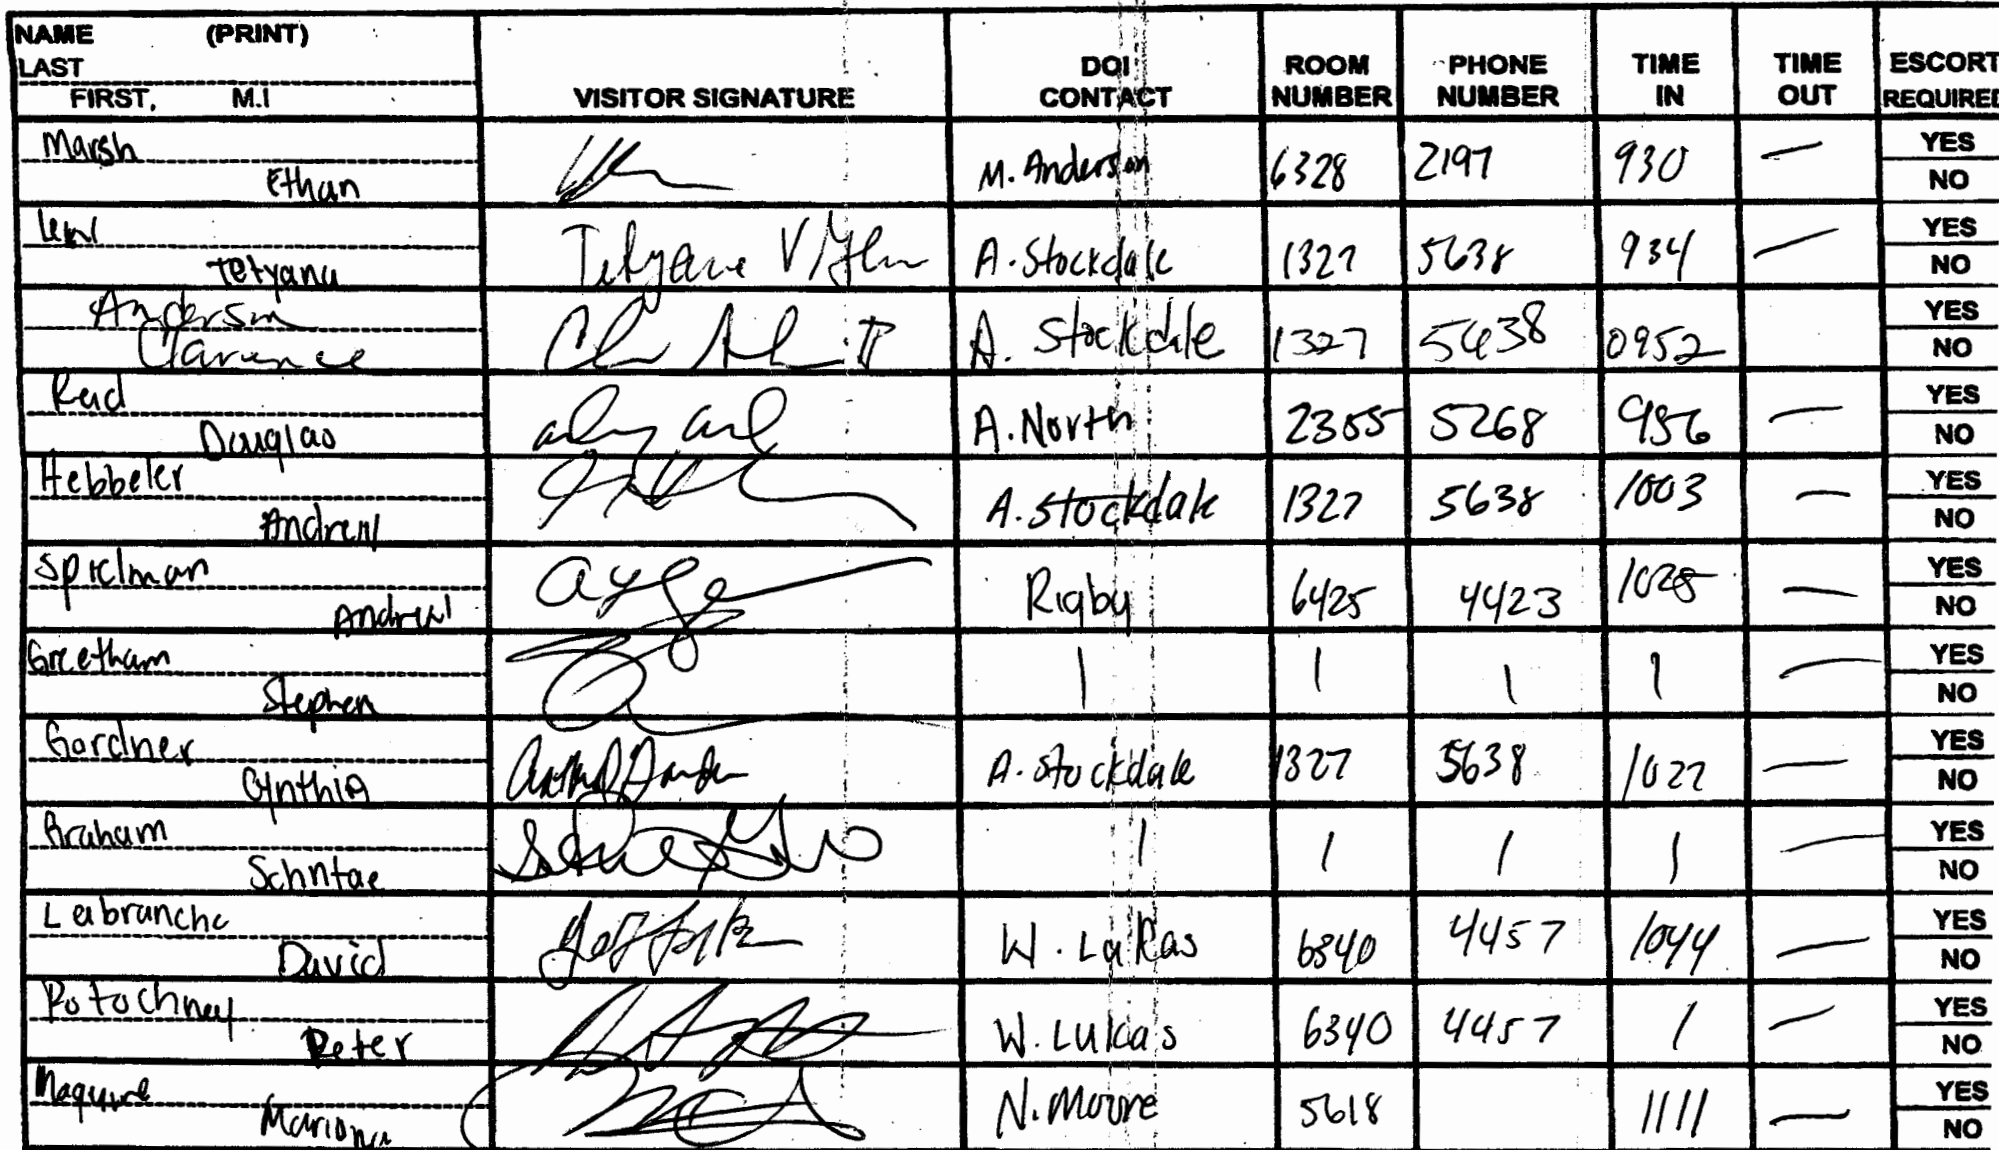 NAME (PRINT)
LAST
FIRST, M.I
VISITOR SIGNATURE
DOI CONTACT
ROOM NUMBER
PHONE NUMBER
TIME IN
TIME OUT
ESCORT REQUIRED
Marsh
Ethan M. Anderson 6328 2197 930 — YES NO
Tetyana A. Stockdale 1327 5638 934 — YES NO
Anderson
Clarence A. Stockdale 1327 5638 0952 YES NO
Reid
Douglas A. North 2355 5268 956 — YES NO
Hebbeler
Andrew A. Stockdale 1327 5638 1003 — YES NO
Spielman
Andrew Rigby 6425 4423 1028 — YES NO
Greetham
Stephen | | | | — YES NO
Gardner
Cynthia A. Stockdale 1327 5638 1022 — YES NO
Graham
Schntae | | | | — YES NO
Labranche
David W. Lukas 6340 4457 1044 — YES NO
Potochney
Peter W. Lukas 6340 4457 | — YES NO
Maguire
Mariona N. Moore 5618 1111 — YES NO